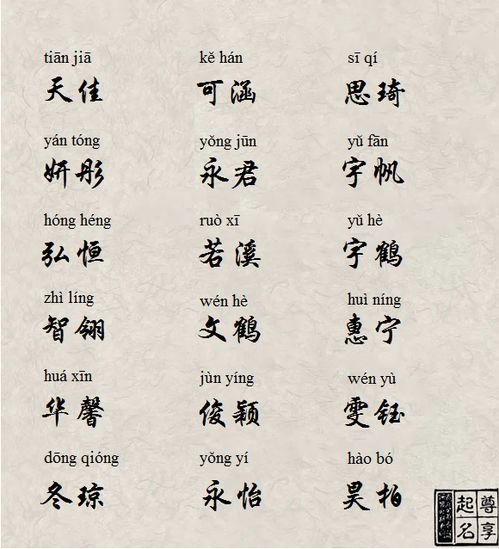 tiān jiā kě hán sī qí
天佳 可涵 思琦
yán tóng yǒng jūn yǔ fān
妍彤 永君 宇帆
hóng héng ruò xī yǔ hè
弘恒 若溪 宇鹤
zhì líng wén hè huì níng
智翎 文鹤 惠宁
huá xīn jùn yíng wén yù
华馨 俊颖 雯钰
dōng qióng yǒng yí hào bó
冬琼 永怡 昊柏
尊享
起名